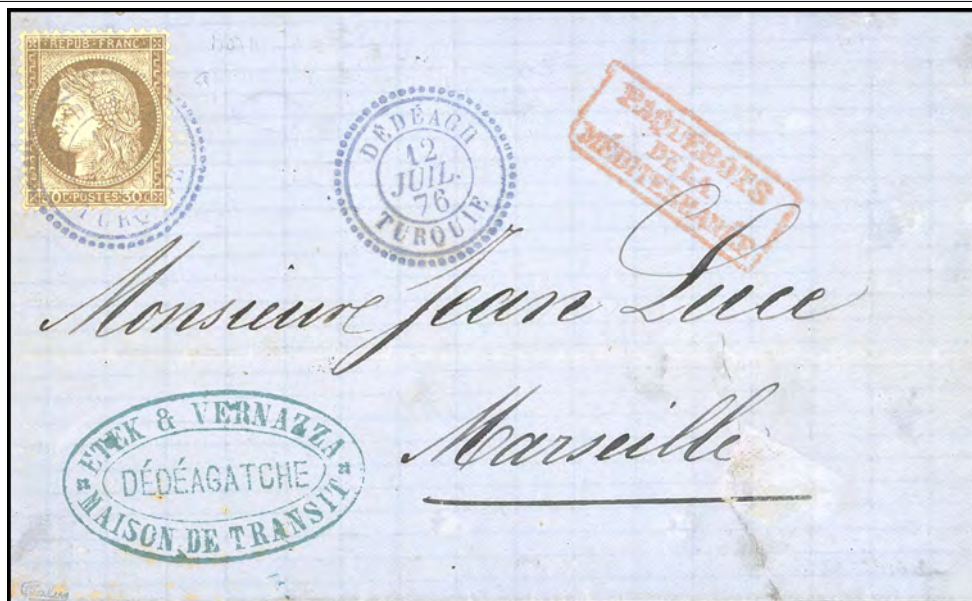 REPUB·FRANC·
30 C·POSTES·30 C
TURQUIE
DÉDÉAGH
12
JUIL.
76
TURQUIE
PAQUEBOTS
DE LA
MÉDITERRANÉE
Monsieur Jean Luce
Marseille
ETEK & VERNAZZA
DÉDÉAGATCHE
MAISON DE TRANSIT